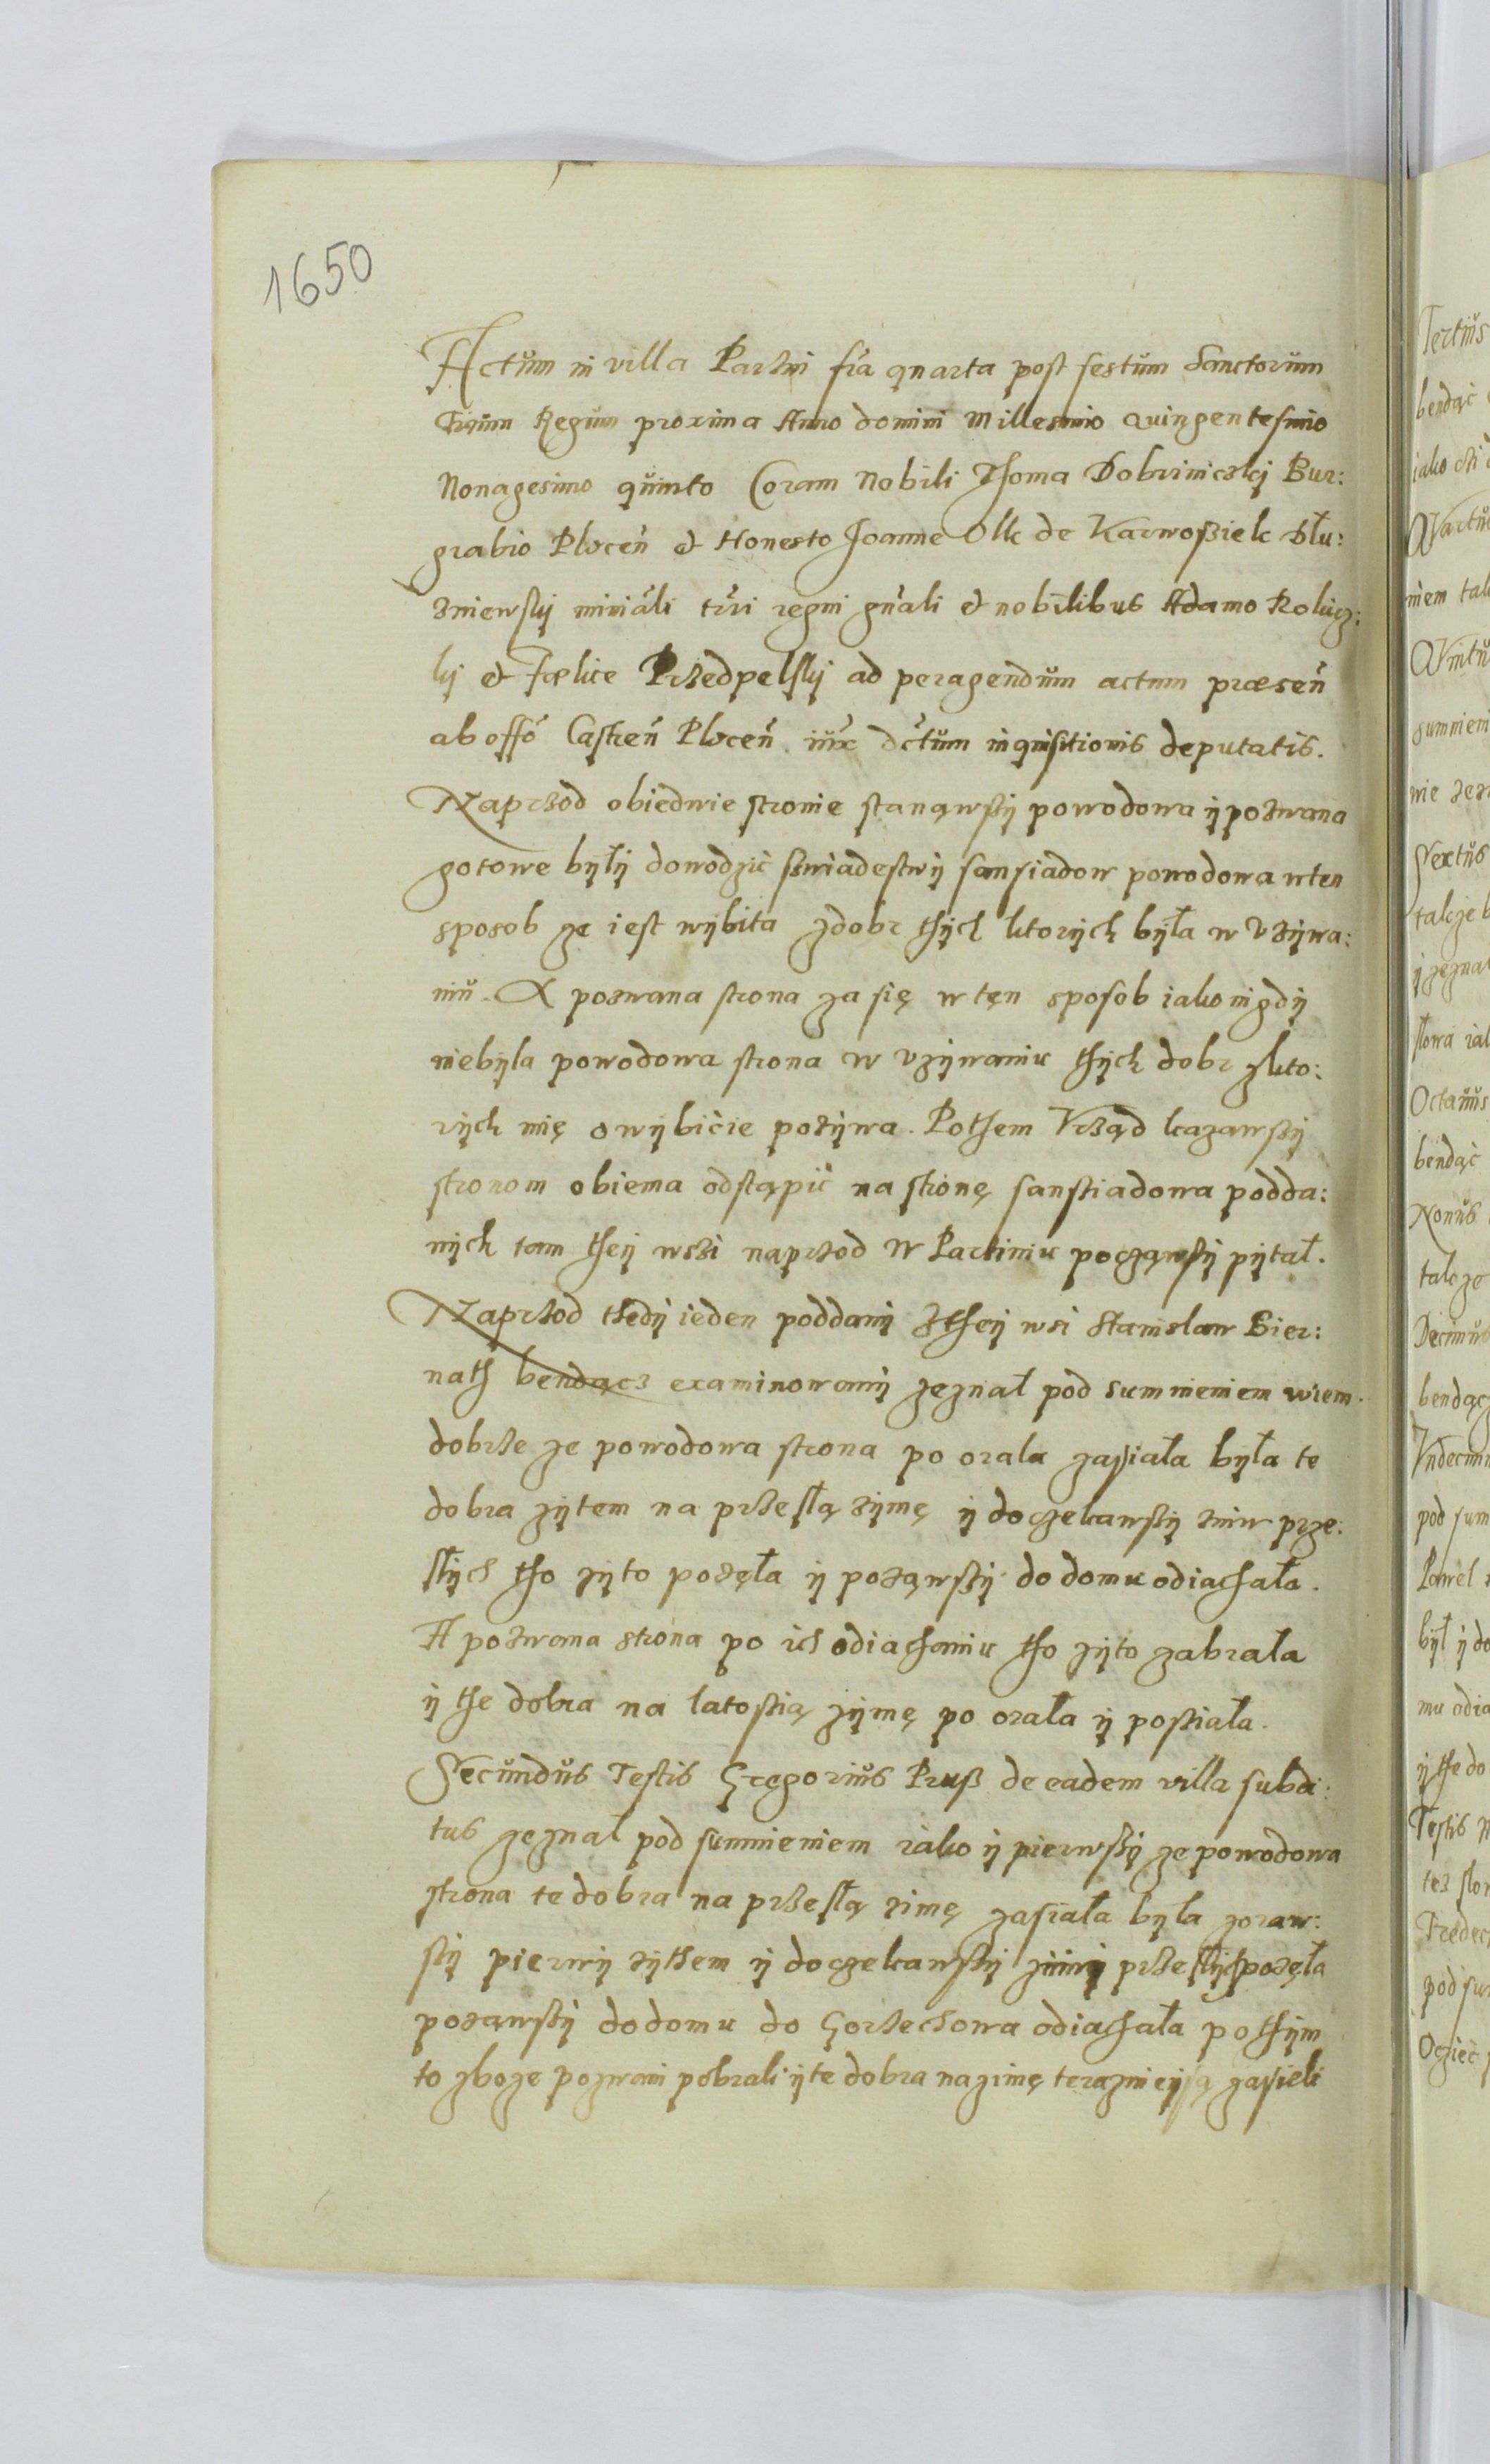 1650
Actum in villa Parzni fra quarta post festum Sanctorum
Trium Regum proxima Anno domini Millesimo quingentesimo
Nonagesimo quinto Coram Nobili Thoma Dobriniczkÿ Bur:
grabio Plocen̄ et Honesto Joanne Olk de Karwoßiek Słu:
zniewskÿ miniāli trri regni gn̄ali et nobilibus Adamo
kÿ et Fælice Przedpelskÿ ad peragendum actum præsen̄
ab offō Castren̄ Plocen̄ iux dctum inquisitionis deputatis.
Naprzod obiedwie stronie stanąwßÿ powodowa ÿ pozwana
gotowe bÿłÿ dowodzić swiadestwÿ sansiadow powodowa wten
sposob ze iest wÿbita zdobr thÿch ktorÿch bÿła w vzÿwa:
niu. A pozwana strona za się w ten sposob iako nigdÿ
niebÿla powodowa strona w vzÿwaniu thÿch dobr zkto:
rÿch mię o wÿbicie pozÿwa. Pothem Vrząd kazawßÿ
stronom obiema odstąpić na stronę sansiadowa podda:
nÿch tam theÿ wsi naprzod W Parziniu począwßÿ pÿtał.
Naprzod thedÿ ieden poddanÿ Ztheÿ wsi Stanislaw Bier:
nath bendącz examinowanÿ zeznał pod sumnieniem wiem
dobrze ze powodowa strona po orala zasiała bÿła te
dobra zÿtem na przesłą zÿmę ÿ doczekawßÿ zniw prze:
słÿch tho zÿto pozęła ÿ poząwßÿ do domu odiachała.
A pozwana strona po ich odiachaniu tho zÿto zabrała
ÿ the dobra na latosią zÿmę po orała ÿ posiała.
Secundus Testis Gregorius Pruß de eadem villa subdi:
tus zeznał pod sumnieniem iako ÿ pierwßÿ ze powodowa
strona te dobra na przesłą zimę zasiała bÿła zoraw:
ßÿ pierwÿ zÿthem ÿ doczekawßÿ zniwÿ przesłÿch pozęła
poząwßÿ do domu do Gorzechowa odiachała pothÿm
to zboze pozwani pobrali ÿ te dobra na zimę zasieli
Tertius
bendąć
iako
Quartus
niem tak
Quintus
sumnieni
nie zez
Sextus
takze b
ÿ zeznał
słowa iak
Octavus
bendąć
Nonus
takze
Decimus
bendącz
Vndecim
pod sum
Pawel
bÿł ÿ do
mu odia
ÿ the do
Testis
tez
Tredec
pod su